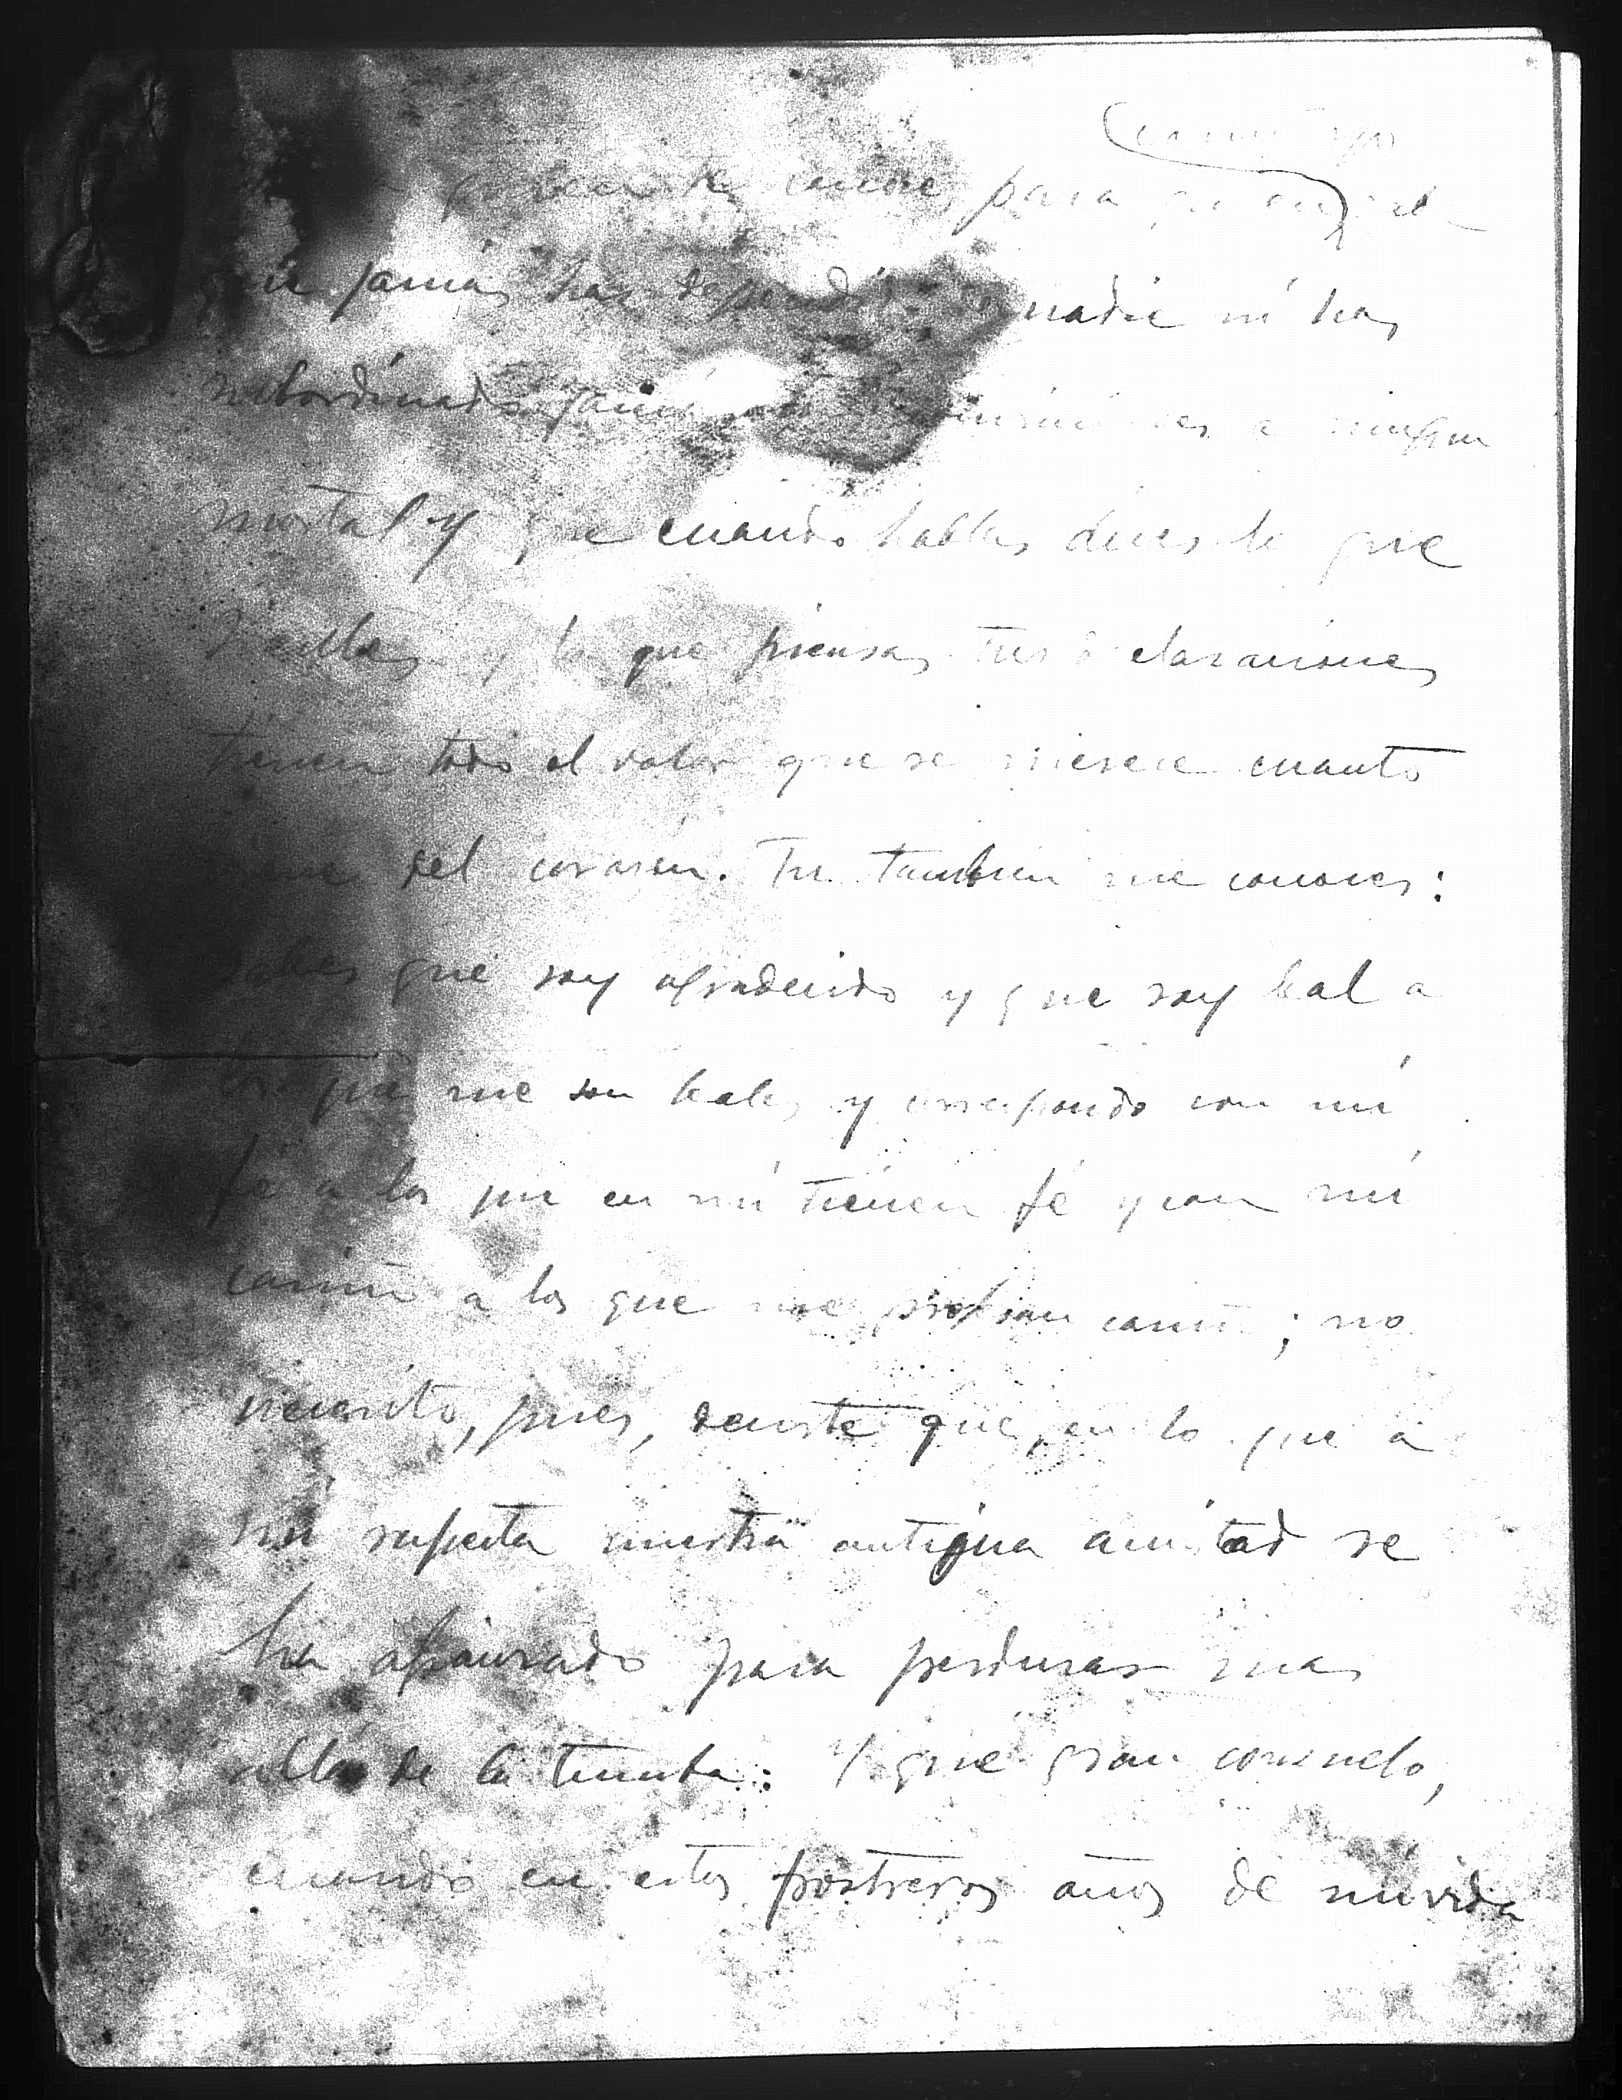 para que
que jamás has dependido de nadie ni has
subordinado jamás a ningun
mortal y que cuando hablas dices lo que
sientes y lo que piensas tus declaraciones
tienen todo el valor que se merece cuanto
viene del corazón. Tu tambien me conoces:
sabes que soy agradecido y que soy leal a
los que me son leales y correspondo con mi
fé a los que en mí tienen fé y con mi
cariño a los que me profesan cariño; no
necesito, pues, decirte que, en lo que a
mí respecta nuestra antigua amistad se
ha afianzado para perdurar mas
allá de la tumba: Y que gran consuelo,
cuando en estos postreros años de mi vida